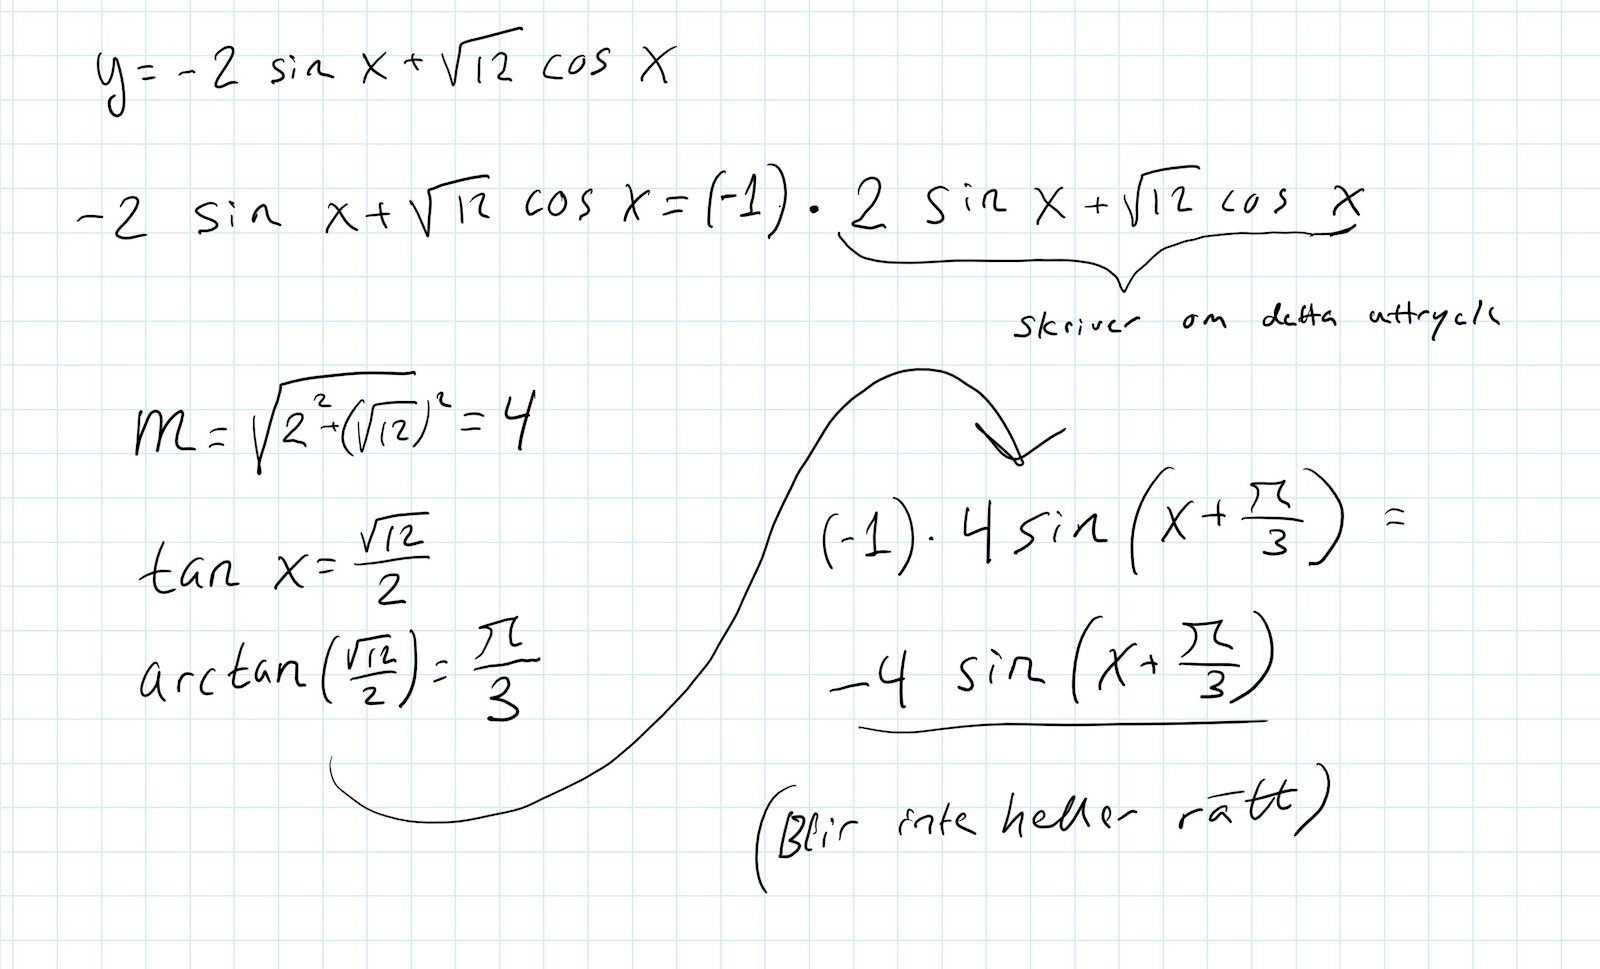 y = -2 sin x + √12 cos x
-2 sin x + √12 cos x = (-1) · 2 sin x + √12 cos x
skriver om detta uttryck
m = √2² + (√12)² = 4
tan x = √12/2
arctan(√12/2) = π/3
(-1) · 4 sin(x + π/3) =
-4 sin(x + π/3)
(Blir inte heller rätt)